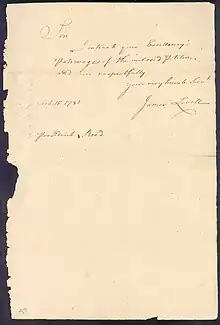 Sir
I intreat your Excellency's
Patronage of the inclosed Petition,
and am respectfully
your very humble Servt.
James Lovell
15 1781
President Reed